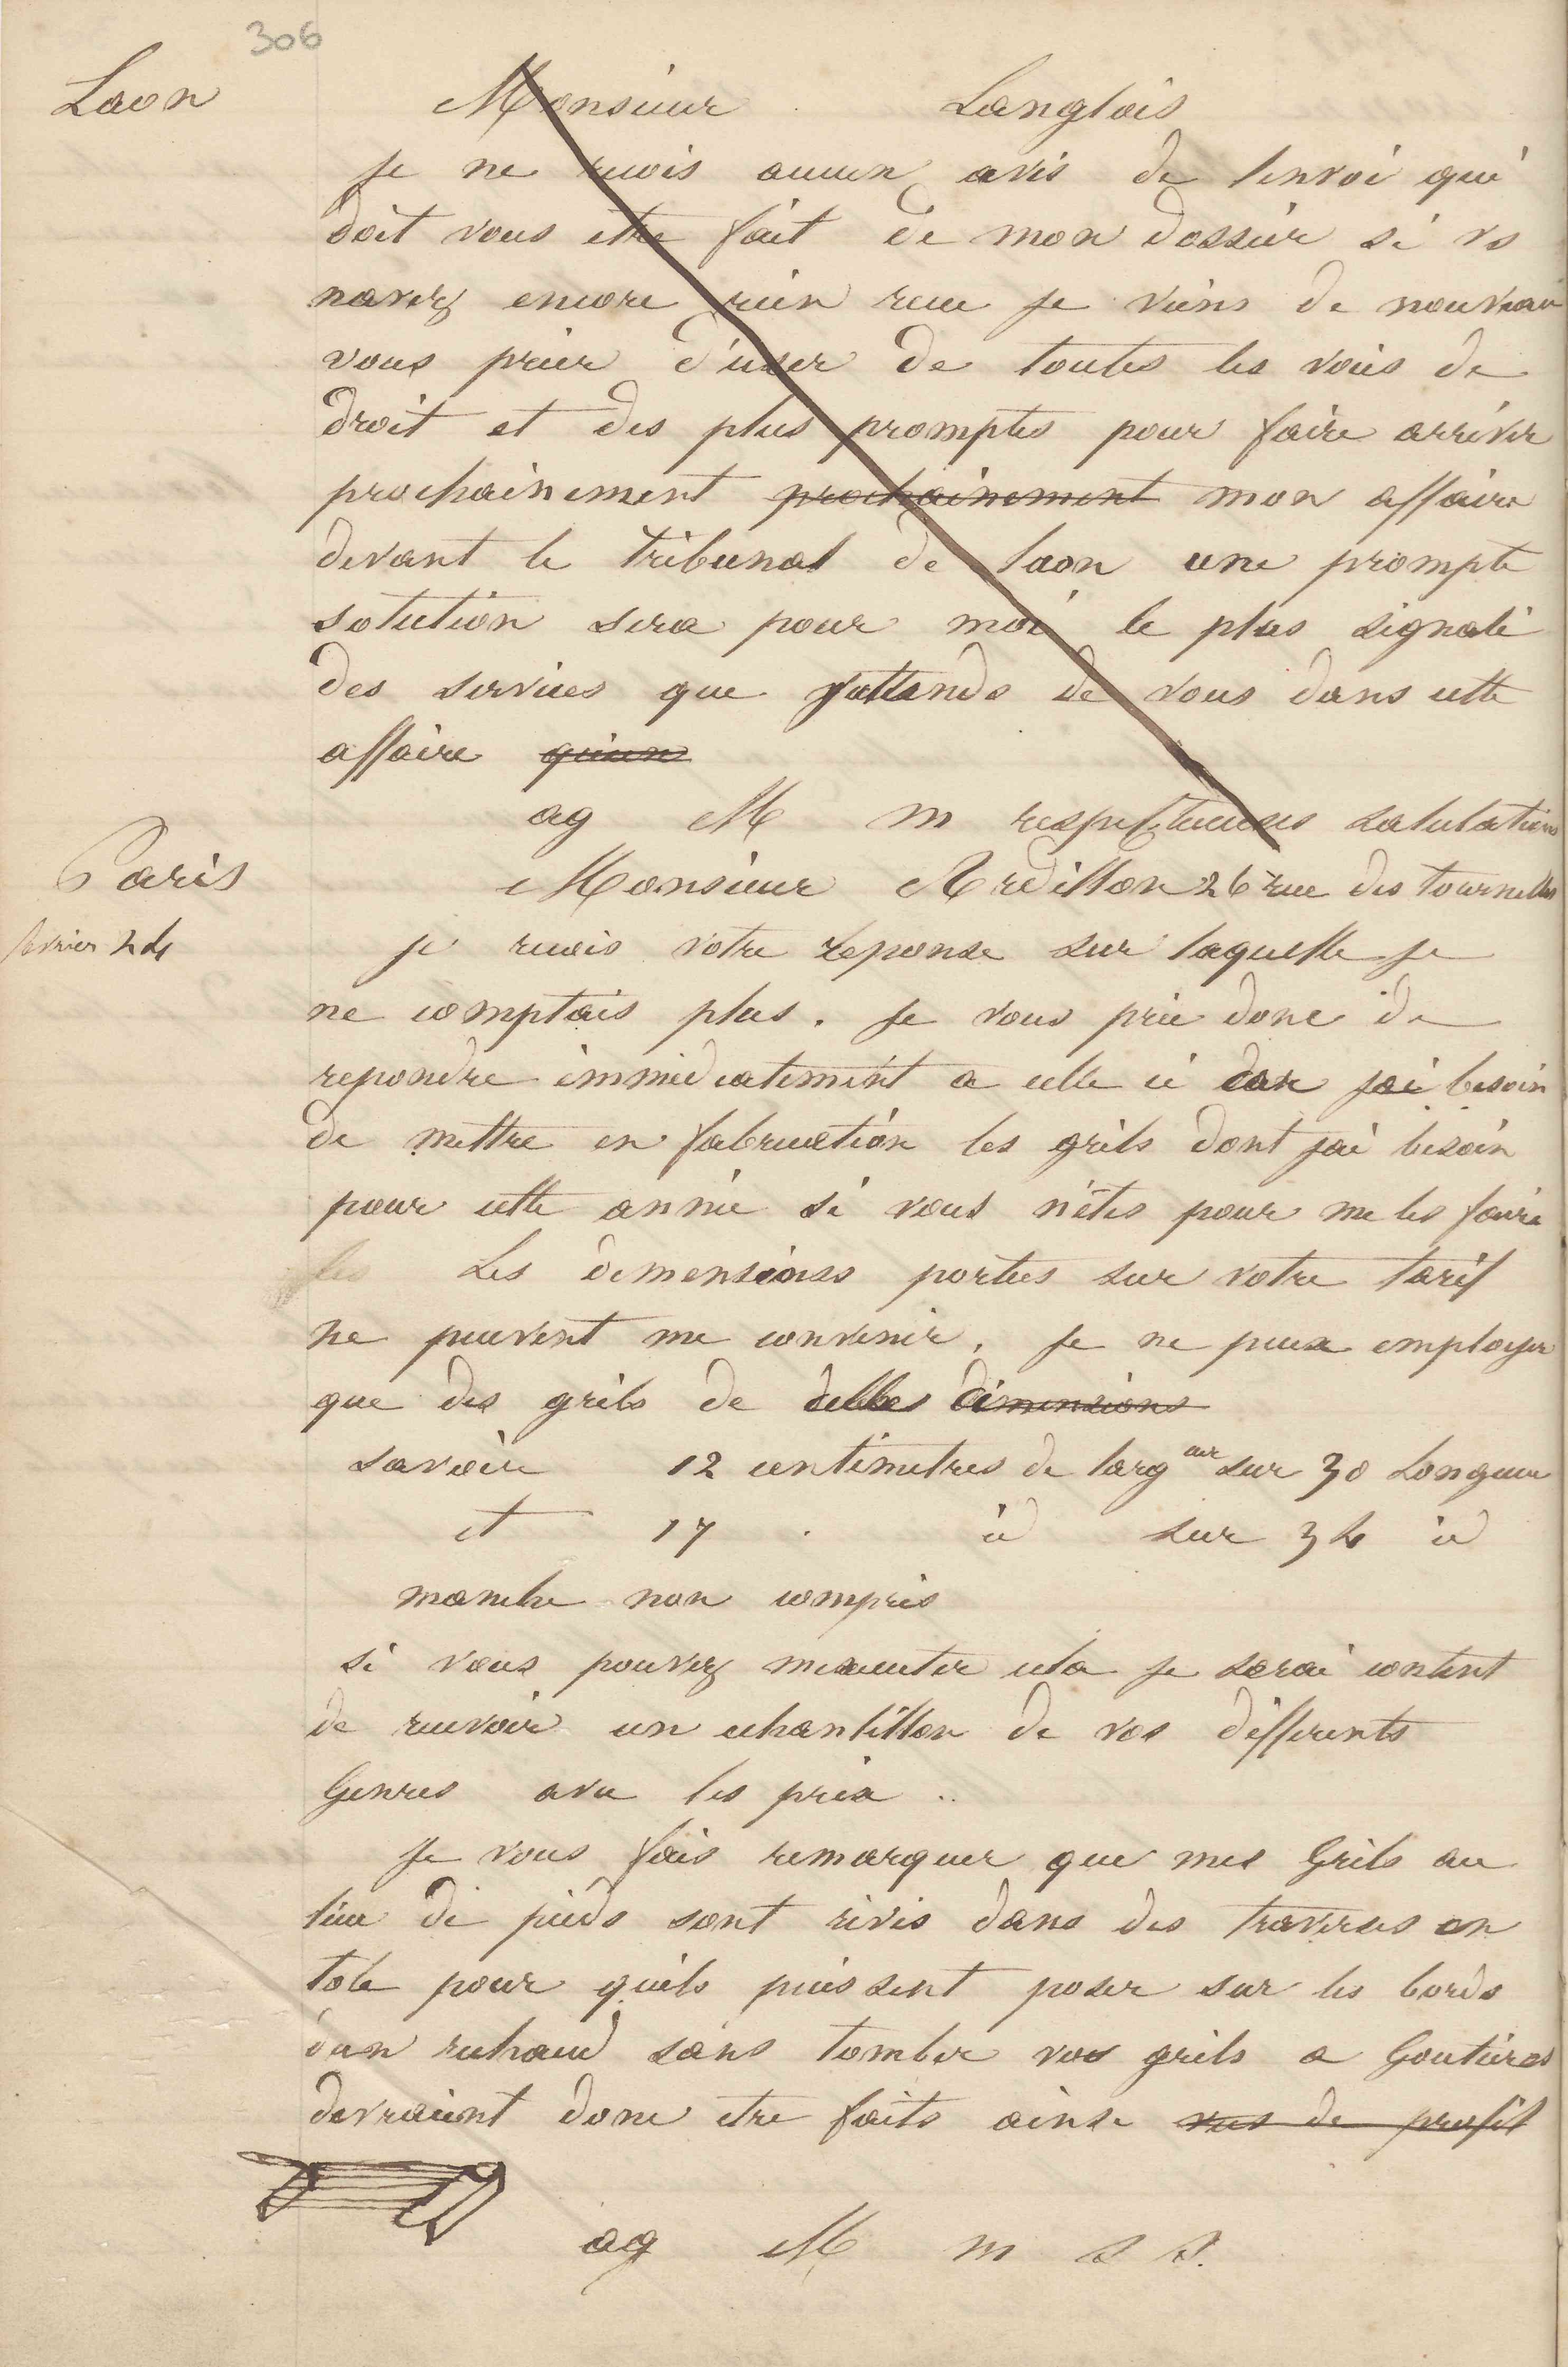 306
Laon
Monsieur Langlois
Je ne reçois aucun avis de lenvoi qui
doit vous etre fait de mon dossier si vs
navez encore rien recu je viens de nouveau
vous prier d'user de toutes les voies de
droit et des plus promptes pour faire arriver
prochainement prochainement mon affaire
devant le tribunal de laon une prompte
solution sera pour moi le plus signalé
des services que j'attends de vous dans cette
affaire
ag M m respectueuses salutations
Paris
Monsieur Ardillon 26 rue des tournelles
fevrier 24
je recois votre reponse sur laquelle je
ne comptais plus. Je vous prie donc de
repondre immediatement a celle ci car jai besoin
de mettre en fabrication les grils dont jai besoin
pour cette année si vous n'êtes pour me les faire
les Les dimensions portées sur votre tarif
ne peuvent me convenir. Je ne peux employer
que des grils de dimensions
savoir 12 centimetres de larg eur sur 30 Longueur
et 17 . id sur 34 id
manche non compris
si vous pouvez mexecuter cela je serai content
de recevoir un echantillon de vos differents
Genres avec les prix ..
Je vous fais remarquer que mes Grils au
lieu de pieds sont rivés dans des traverses en
tole pour quils puissent poser sur les bords
dun rechaud sans tomber vos grils a Goutieres
devraient donc etre faits ainsi vus de profil
ag M m s s.